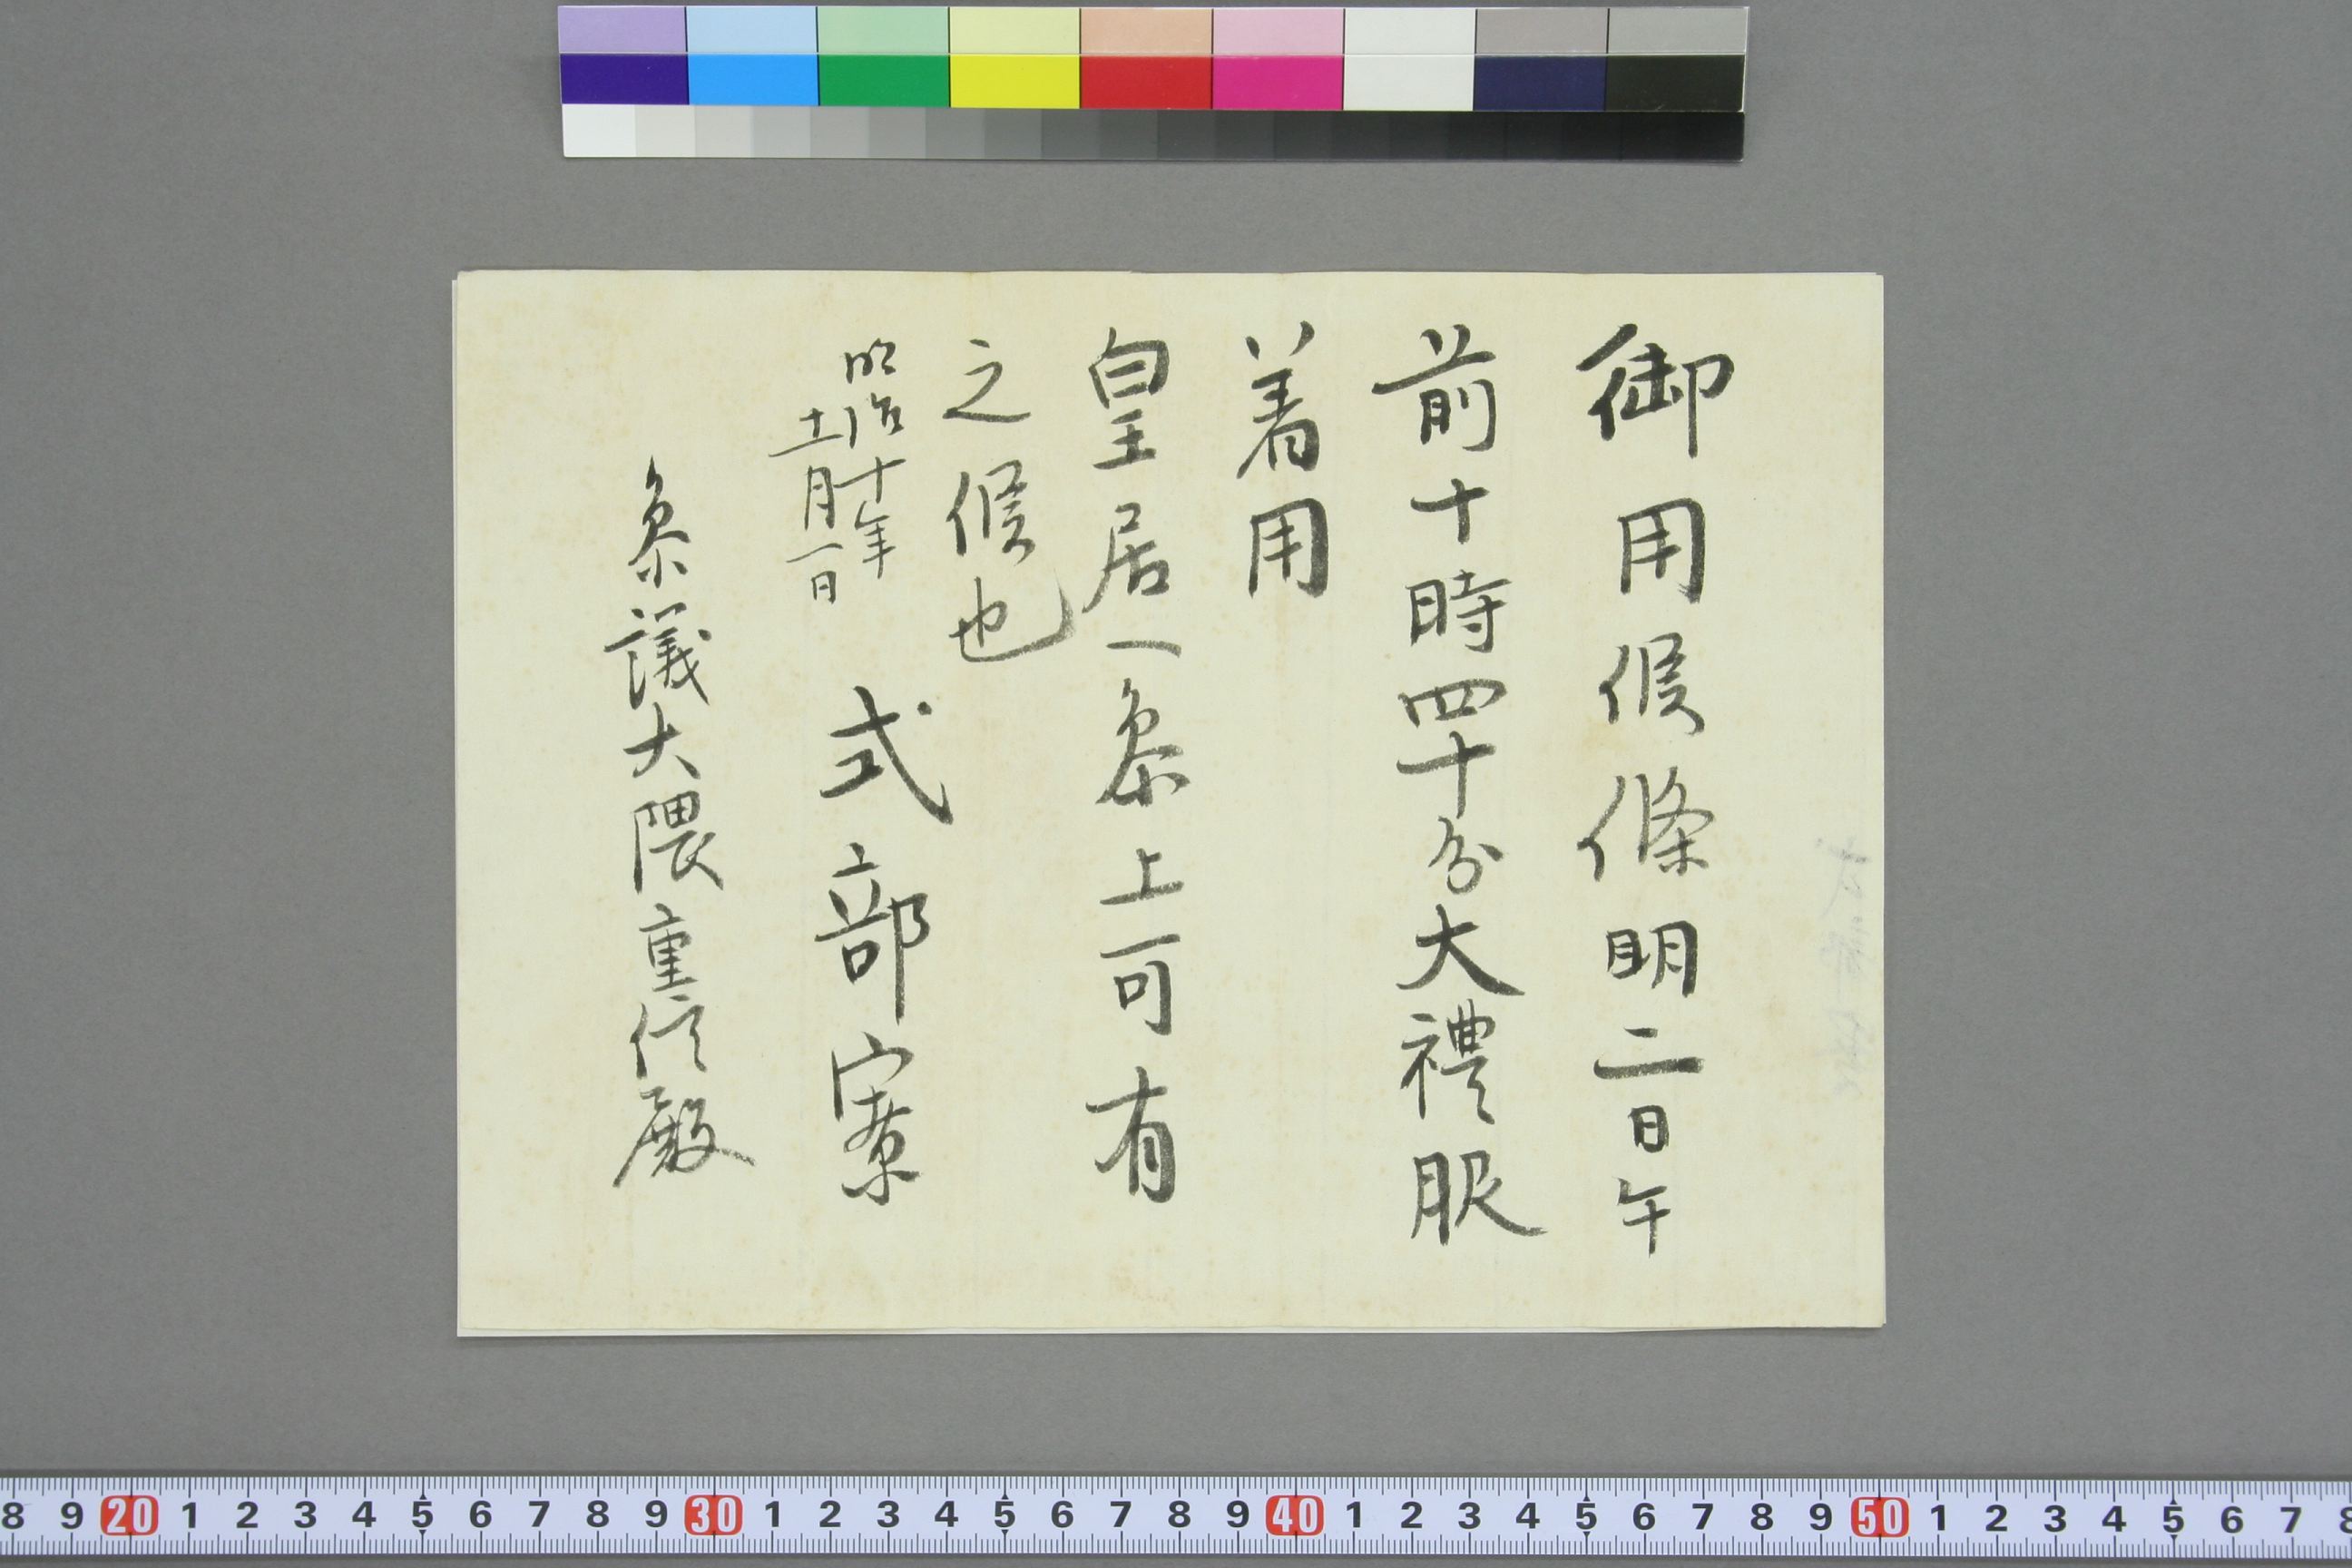 御用候條明二日午
前十時四十分大禮服
着用
皇居へ参上可有
之候也
明治十年
十一月一日
式部寮
参議大隈重信殿
8 9 20 1 2 3 4 5 6 7 8 9 30 1 2 3 4 5 6 7 8 9 40 1 2 3 4 5 6 7 8 9 50 1 2 3 4 5 6 7 8